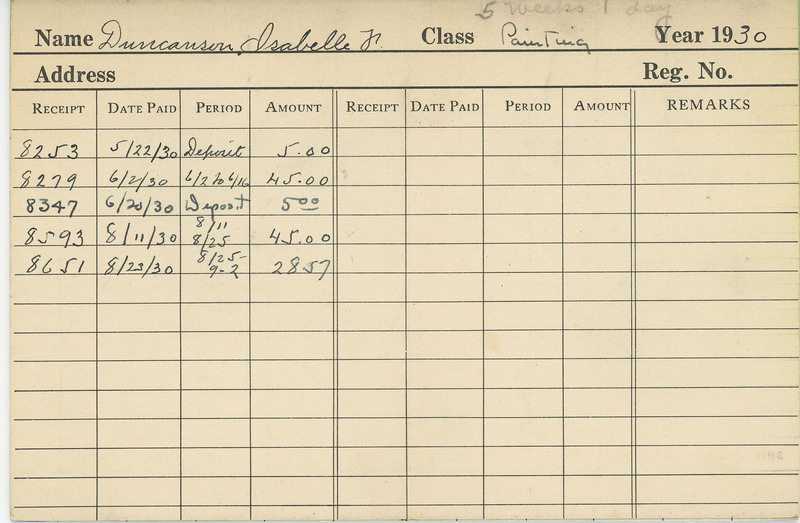 5 weeks 1 day
Name Duncanson, Isabelle F. Class Painting Year 1930
Address Reg. No.
RECEIPT DATE PAID PERIOD AMOUNT RECEIPT DATE PAID PERIOD AMOUNT REMARKS
8253 5/22/30 Deposit 5.00
8279 6/2/30 6/2 to 6/16 45.00
8347 6/20/30 Deposit 5.00
8/11
8593 8/11/30 8/25 45.00
8/25-
8651 8/23/30 9-2 28 57